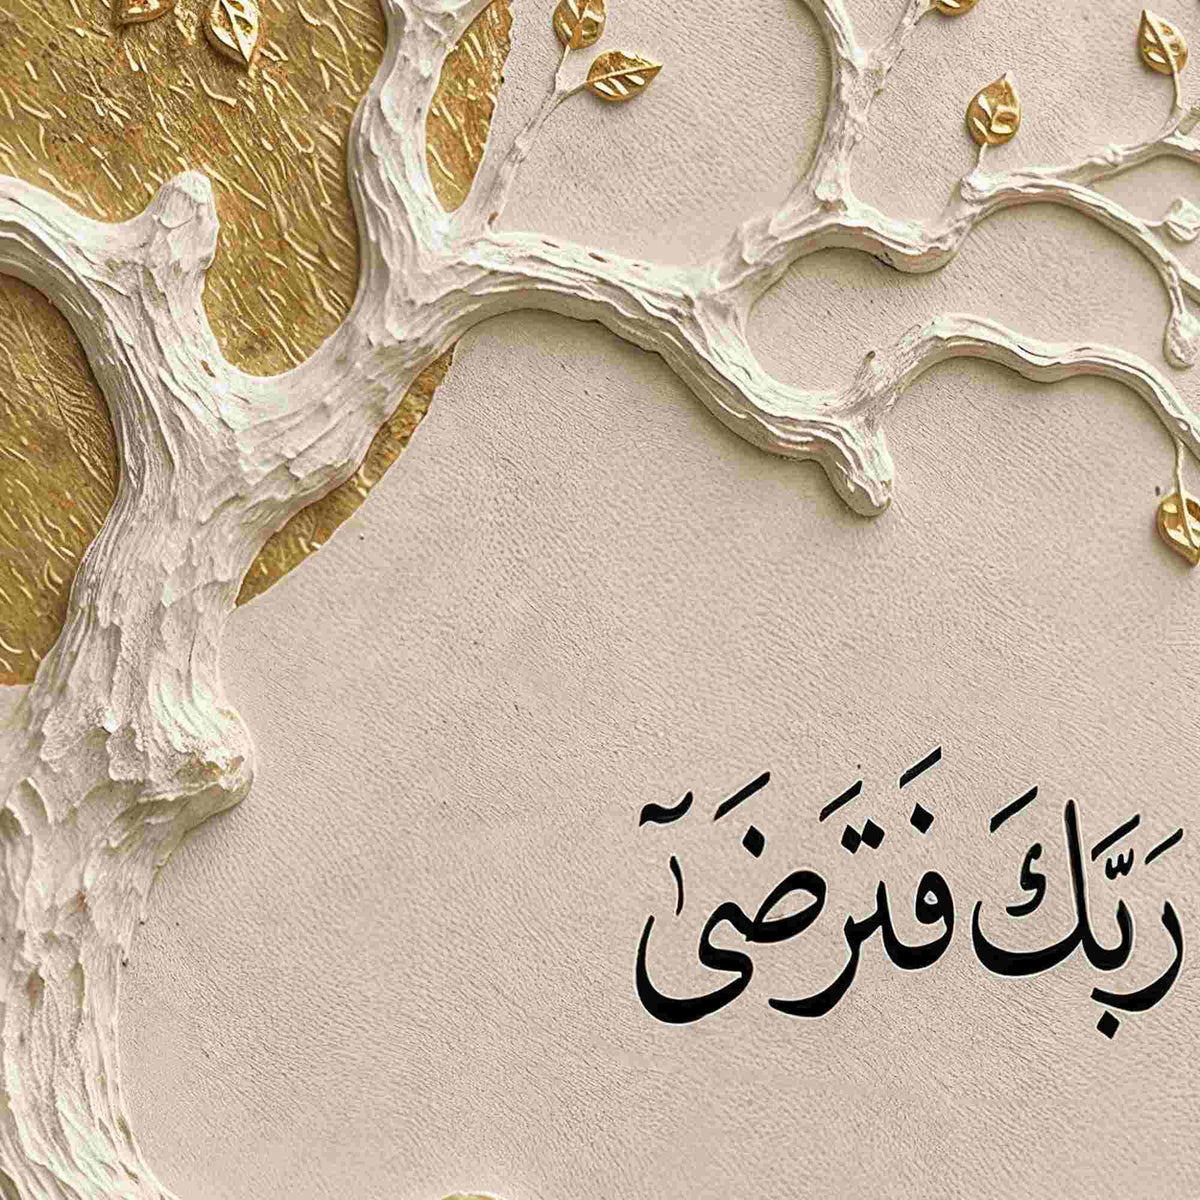 رَبُّكَ فَتَرَضَىٰٓ